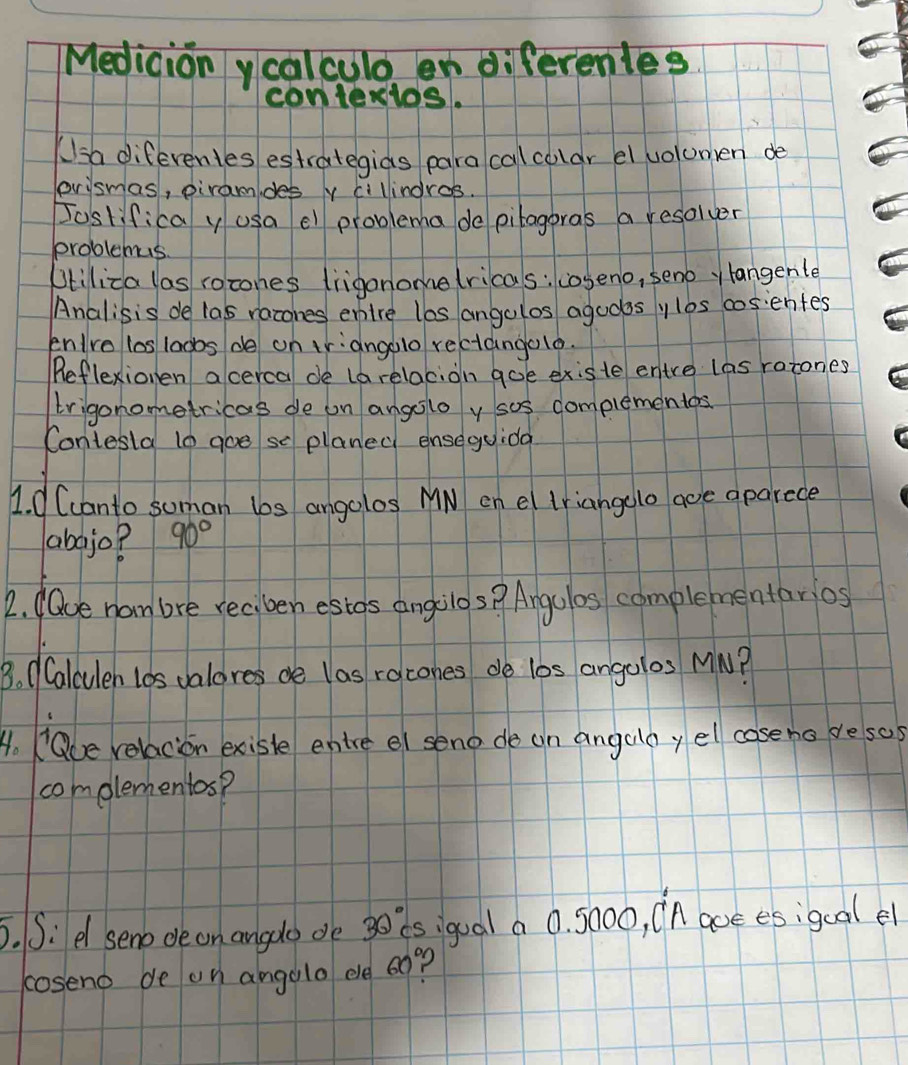 Medición y calculo en diferentes
contextos.
Usa diferentes estrategias para calcular el volumen de
prismas, piramides y cilindros.
Justifica y usa el problema de pitagoras a resolver
problemas.
Utiliza las razones trigonometricas: coseno, seno y tangente
Analisis de las razones entre los angulos agudos y los cosientes
entre los lados de un triangulo rectángulo.
Reflexionen acerca de la relación que existe entre las razones
trigonometricas de un angulo y sus complementos.
Contesta lo que se planea enseguida
1. ¿Cuanto suman los angulos MN en el triangulo que aparece
abajo? 90°
2. ¿Que nombre reciben estos angulos? Angulos complementarios
3. ¿Calculen los valores de las razones de los angulos MN?
4. ¿Que relación existe entre el seno de un angulo y el coseno de sus
complementos?
5. Si el seno de un angulo de 30° es igual a 0.5000, ¿A que es igual el
coseno de un angulo de 60°?